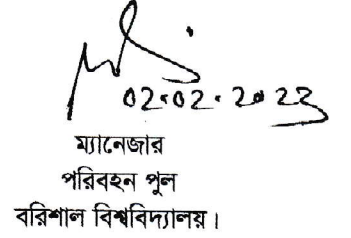 02.02.2023
ম্যানেজার
পরিবহন পুল
বরিশাল বিশ্ববিদ্যালয়।